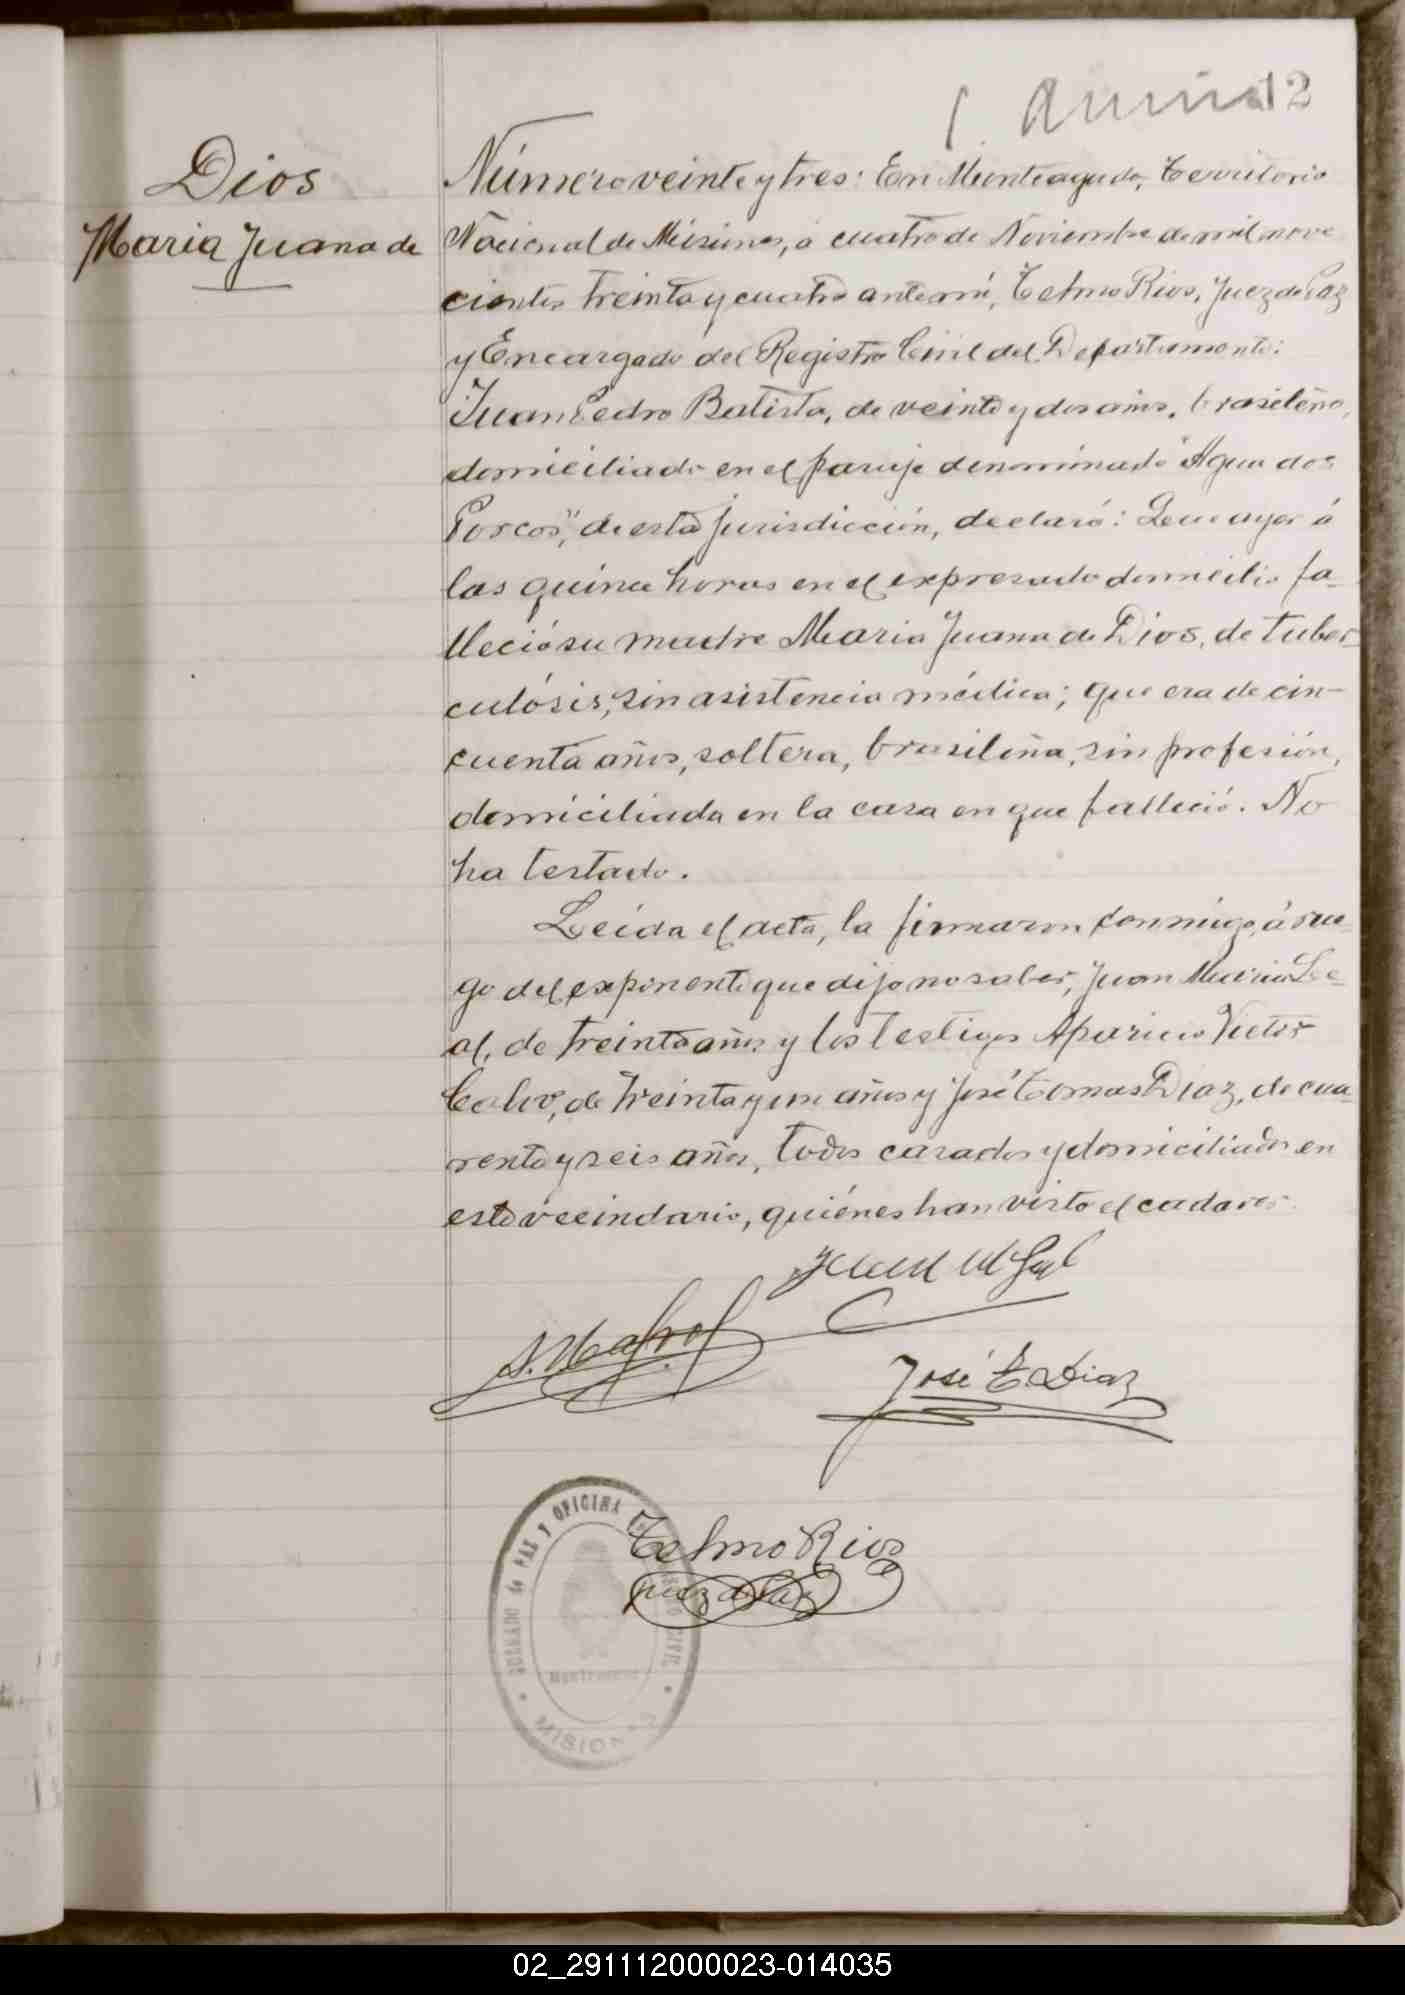 12
Dios
Maria Juana de
Número veinte y tres: En Monteagudo, Territorio
Nacional de Misiones, á cuatro de Noviembre de mil nove
cientos treinta y cuatro ante mí, Telmo Rios, Juez de Paz
y Encargado del Registro Civil del Departamento:
Juan Pedro Batista, de veinte y dos años, brasileño,
domiciliado en el paraje denominado "Agua dos
Porcos", de esta jurisdicción, declaró: Que ayer á
las quince horas en el expresado domicilio fa-
lleció su madre Maria Juana de Dios, de tuber-
culósis, sin asistencia médica; que era de cin-
cuenta años, soltera, brasileña, sin profesión,
domiciliada en la casa en que falleció. No
ha testado.
Leida el acta, la firmaron conmigo, á rue-
go del exponente que dijo no saber, Juan Maria Le-
al, de treinta años y los testigos Aparicio Victor
Calvo, de treinta y un años y José Tomas Diaz, de cua-
renta y seis años, todos casados y domiciliados en
este vecindario, quiénes han visto el cadaver.
Juan M Leal
José T Diaz
Telmo Rios
Juez de Paz
JUZGADO de PAZ Y OFICINA
CIVIL
MISIONES
02_291112000023-014035